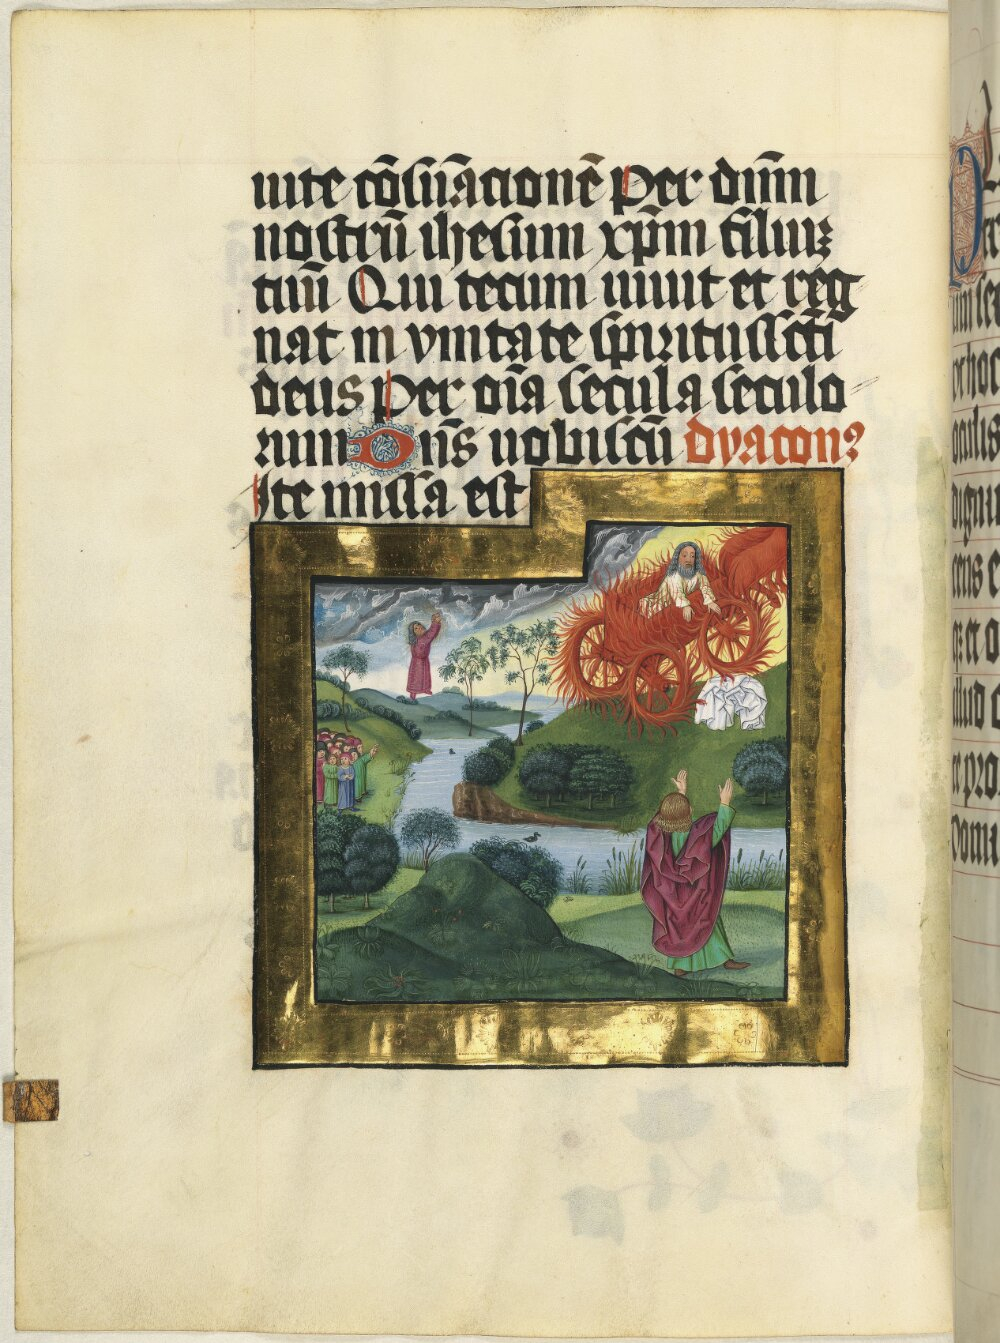 uite cōsūacionē Per dn̄m
nostrū ihesum xp̄m filiuʒ
tuū Qui tecum uiuit et reg
nat in vnitate spirituss̄cti
deus Per oīa secula seculo
rum Dn̄s uobiscū dyacon9
Ite missa est